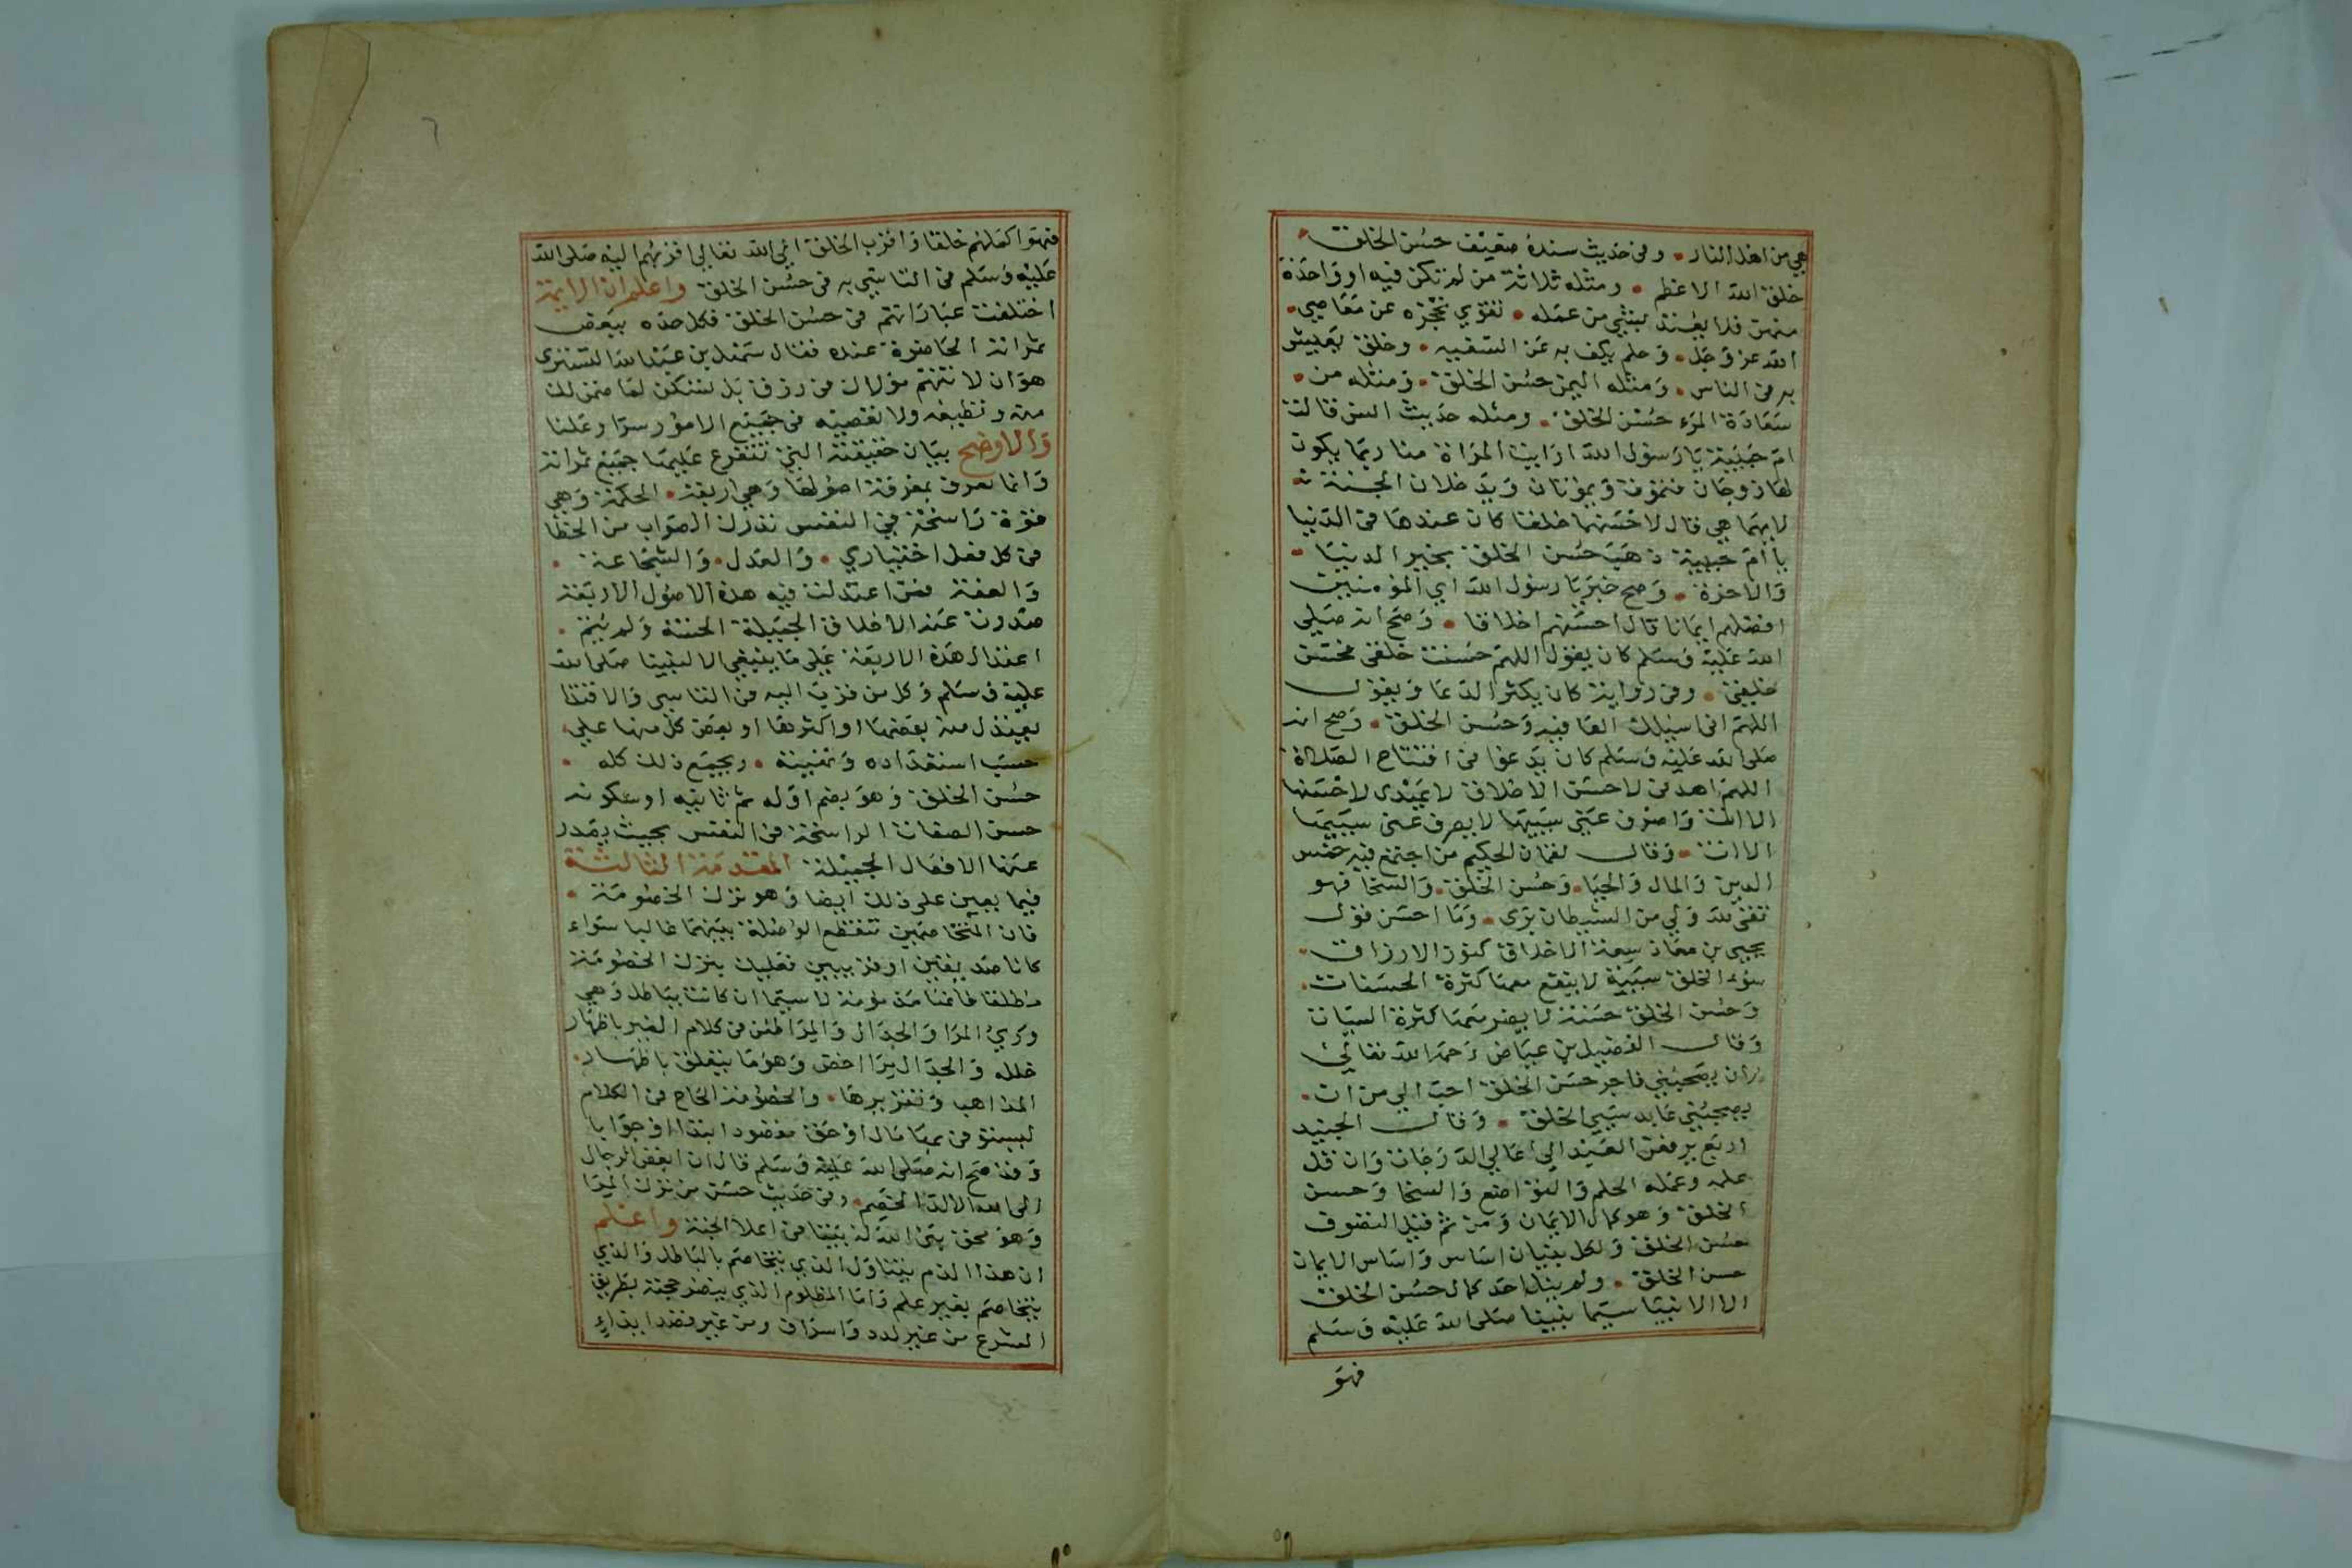 هي من اهل النار وفي حديث سنده ضعيف حسن الخلق
خلق الله الاعظم ومثله ثلاثة من لم تكن فيه او واحدة
منهن فلا يعتد بشي من عمله تقوي تحجزه عن معاصي
الله عز وجل وحلم يكف به عن السفيه وخلق يعيش
به في الناس ومثله اليمن حسن الخلق ومثله من
سعادة المرء حسن الخلق ومثله حديث انس قالت
ام حبيبة يا رسول الله ارايت المراة منا ربما يكون
لها زوجان فتموت ويموتان ويدخلان الجنة
لايهما هي قال لاحسنهما خلقا كان عندها في الدنيا
يا ام حبيبة ذهب حسن الخلق بخير الدنيا
والاخرة وصح خبر يا رسول الله اي المؤمنين
افضلهم ايمانا قال احسنهم اخلاقا وصح انه صلي
الله عليه وسلم كان يقول اللهم حسنت خلقي فحسن
خلقي وفي رواية كان يكثر الدعا ويقول
اللهم اني اسيلك العافية وحسن الخلق وصح انه
صلى الله عليه وسلم كان يدعوا في افتتاح الصلاة
اللهم اهدني لاحسن الاخلاق لا يهدى لاحسنها
الا انت واصرف عني سييها لا يصرف عني سييها
الا انت وقال لقمان الحكيم من اجتمع فيه خمس
الدين والمال والحيا وحسن الخلق والسخا فهو
تقي لله ولي من الشيطان برى وما احسن قول
يحيى بن معاذ سعة الاخلاق كنوز الارزاق
سوء الخلق سيية لا ينفع معها كثرة الحسنات
وحسن الخلق حسنة لا يضر معها كثرة السيات
وقال الفضيل بن عياض رحمه الله تعالى
لان يصحبني فاجر حسن الخلق احب الي من ان
يصحبني عابد سيي الخلق وقال الجنيد
اربع ترفعن العبد الى اعالي الدرجات وان قل
علمه وعمله الحلم والتواضع والسخا وحسن
الخلق وهو كمال الايمان ومن ثم قيل التصوف
حسن الخلق ولكل بنيان اساس واساس الايمان
حسن الخلق ولم ينل احد كمال حسن الخلق
الا الانبيا سيما نبينا صلى الله عليه وسلم
فهو
٦
فهو اكملهم خلقا واقرب الخلق الي الله تعالي اقربهم اليه صلى الله
عليه وسلم في التاسي به في حسن الخلق واعلم ان الايمة
اختلفت عباراتهم في حسن الخلق فكل حده ببعض
ثمراته الحاضرة عنده فقال سهل بن عبد الله التسترى
هو ان لا تتهم مولاك في رزق بل تسكن لما ضمن لك
منه وتطيعه ولا تعصيه في جميع الامور سرا وعلنا
والاوضح بيان حقيقته التي تتفرع عليها جميع ثمراته
وانما تعرف بمعرفة اصولها وهي اربعة الحكمة وهي
قوة راسخة في النفس تدرك الصواب من الخطا
في كل فعل اختياري والعدل والشجاعة
والعفة فمن اعتدلت فيه هذه الاصول الاربعة
صدرت عنه الاخلاق الجميلة الحسنة ولم يتم
اعتدال هذه الاربعة على ما ينبغي الا لنبينا صلى الله
عليه وسلم وكل من قرب اليه في التاسي والاقتدا
يعتدل منه بعضها او اكثرها او بعض كل منها علي
حسب استعداده وتمدينه ويجمع ذلك كله
حسن الخلق وهو بضم اوله ثم ثانيه او سكونه
حسن الصفات الراسخة في النفس بحيث يصدر
عنها الافعال الجميلة المقدمة الثالثة
فيما يعين على ذلك ايضا وهو ترك الخصومة
فان المتخاصمين تنقطع الوصلة بينهما غالبا سواء
كانا صديقين او قريبين فعليك بترك الخصومة
مطلقا فانها مذمومة لا سيما ان كانت بباطل وهي
المرا والجدال والمرا طعن في كلام الغير باظهار
خلله والجدال مرا اخص وهو ما يتعلق باظهار
المذاهب وتقريرها والخصومة لجاج في الكلام
ليستوفي بها مال او حق مقصود ابتدا او جوابا
وقد صح انه صلى الله عليه وسلم قال ان ابغض الرجال
الى الله الالد الخصم وفي حديث حسن من ترك المرا
وهو محق بني الله له بيتا في اعلا الجنة واعلم
ان هذا الذم يتناول الذي يتخاصم بالباطل والذي
يتخاصم بغير علم واما المظلوم الذي ينصر حجته بطريق
الشرع من غير لدد واسراف ومن غير قصد ايذاء